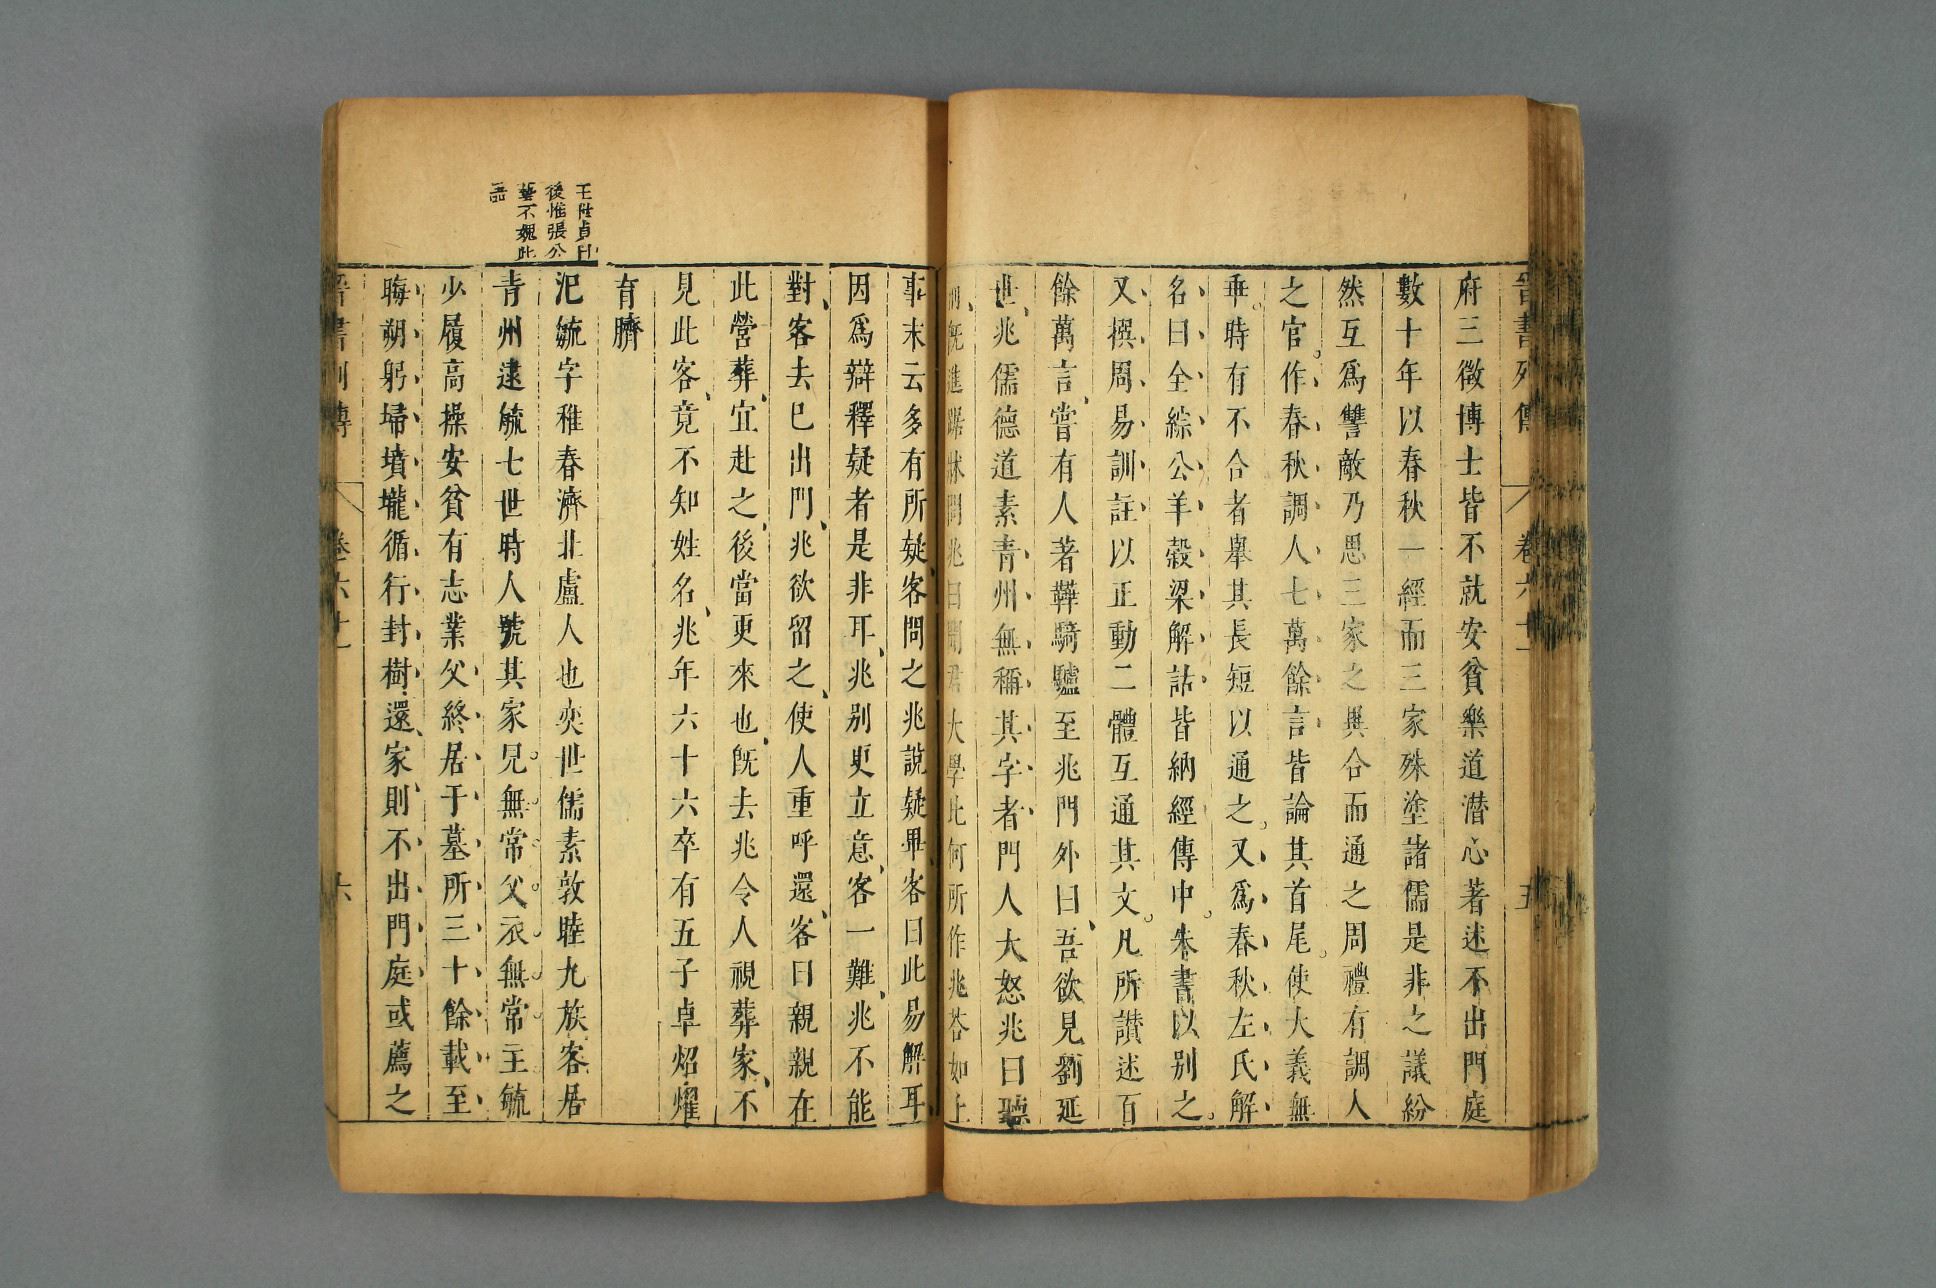 府三徵博士皆不就安貧樂道潛心著述不出門庭
數十年以春秋一經而三家殊塗諸儒是非之議紛
然互爲讐敵乃思三家之異合而通之周禮有調人
之官作春秋調人七萬餘言皆論其首尾使大義無
乖時有不合者舉其長短以通之又爲春秋左氏解
名曰全綜公羊穀梁解詁皆納經傳中朱書以别之
又撰周易訓註以正動二體互通其文凡所讃述百
餘萬言嘗有人著鞾騎驢至兆門外曰吾欲見劉延
世兆儒德道素青州無稱其字者門人大怒兆曰聽
前旣進踞牀問兆曰聞君大學比何所作兆荅如上
事末云多有所疑客問之兆說疑畢客曰此易解耳
因爲辯釋疑者是非耳兆别更立意客一難兆不能
對客去已出門兆欲留之使人重呼還客曰親親在
此營葬宜赴之後當更來也旣去兆令人視葬家不
見此客竟不知姓名兆年六十六卒有五子卓炤燿
育臍
王世貞曰
後惟張公
藝不媿此
語
氾毓字稚春濟北盧人也奕世儒素敦睦九族客居
青州逮毓七世時人號其家兒無常父衣無常主毓
少履高操安貧有志業父終居于墓所三十餘載至
晦朔躬埽墳壠循行封樹還家則不出門庭或薦之
晉書列傳 卷六十一 六